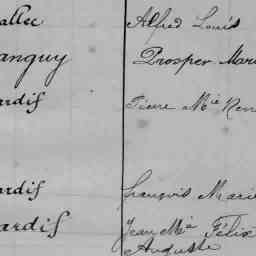 allec Alfred Louis
anguy Prosper Mari
ardif Pierre Mie Ren
ardif François Marie
ardif Jean Mie Félix
Auguste